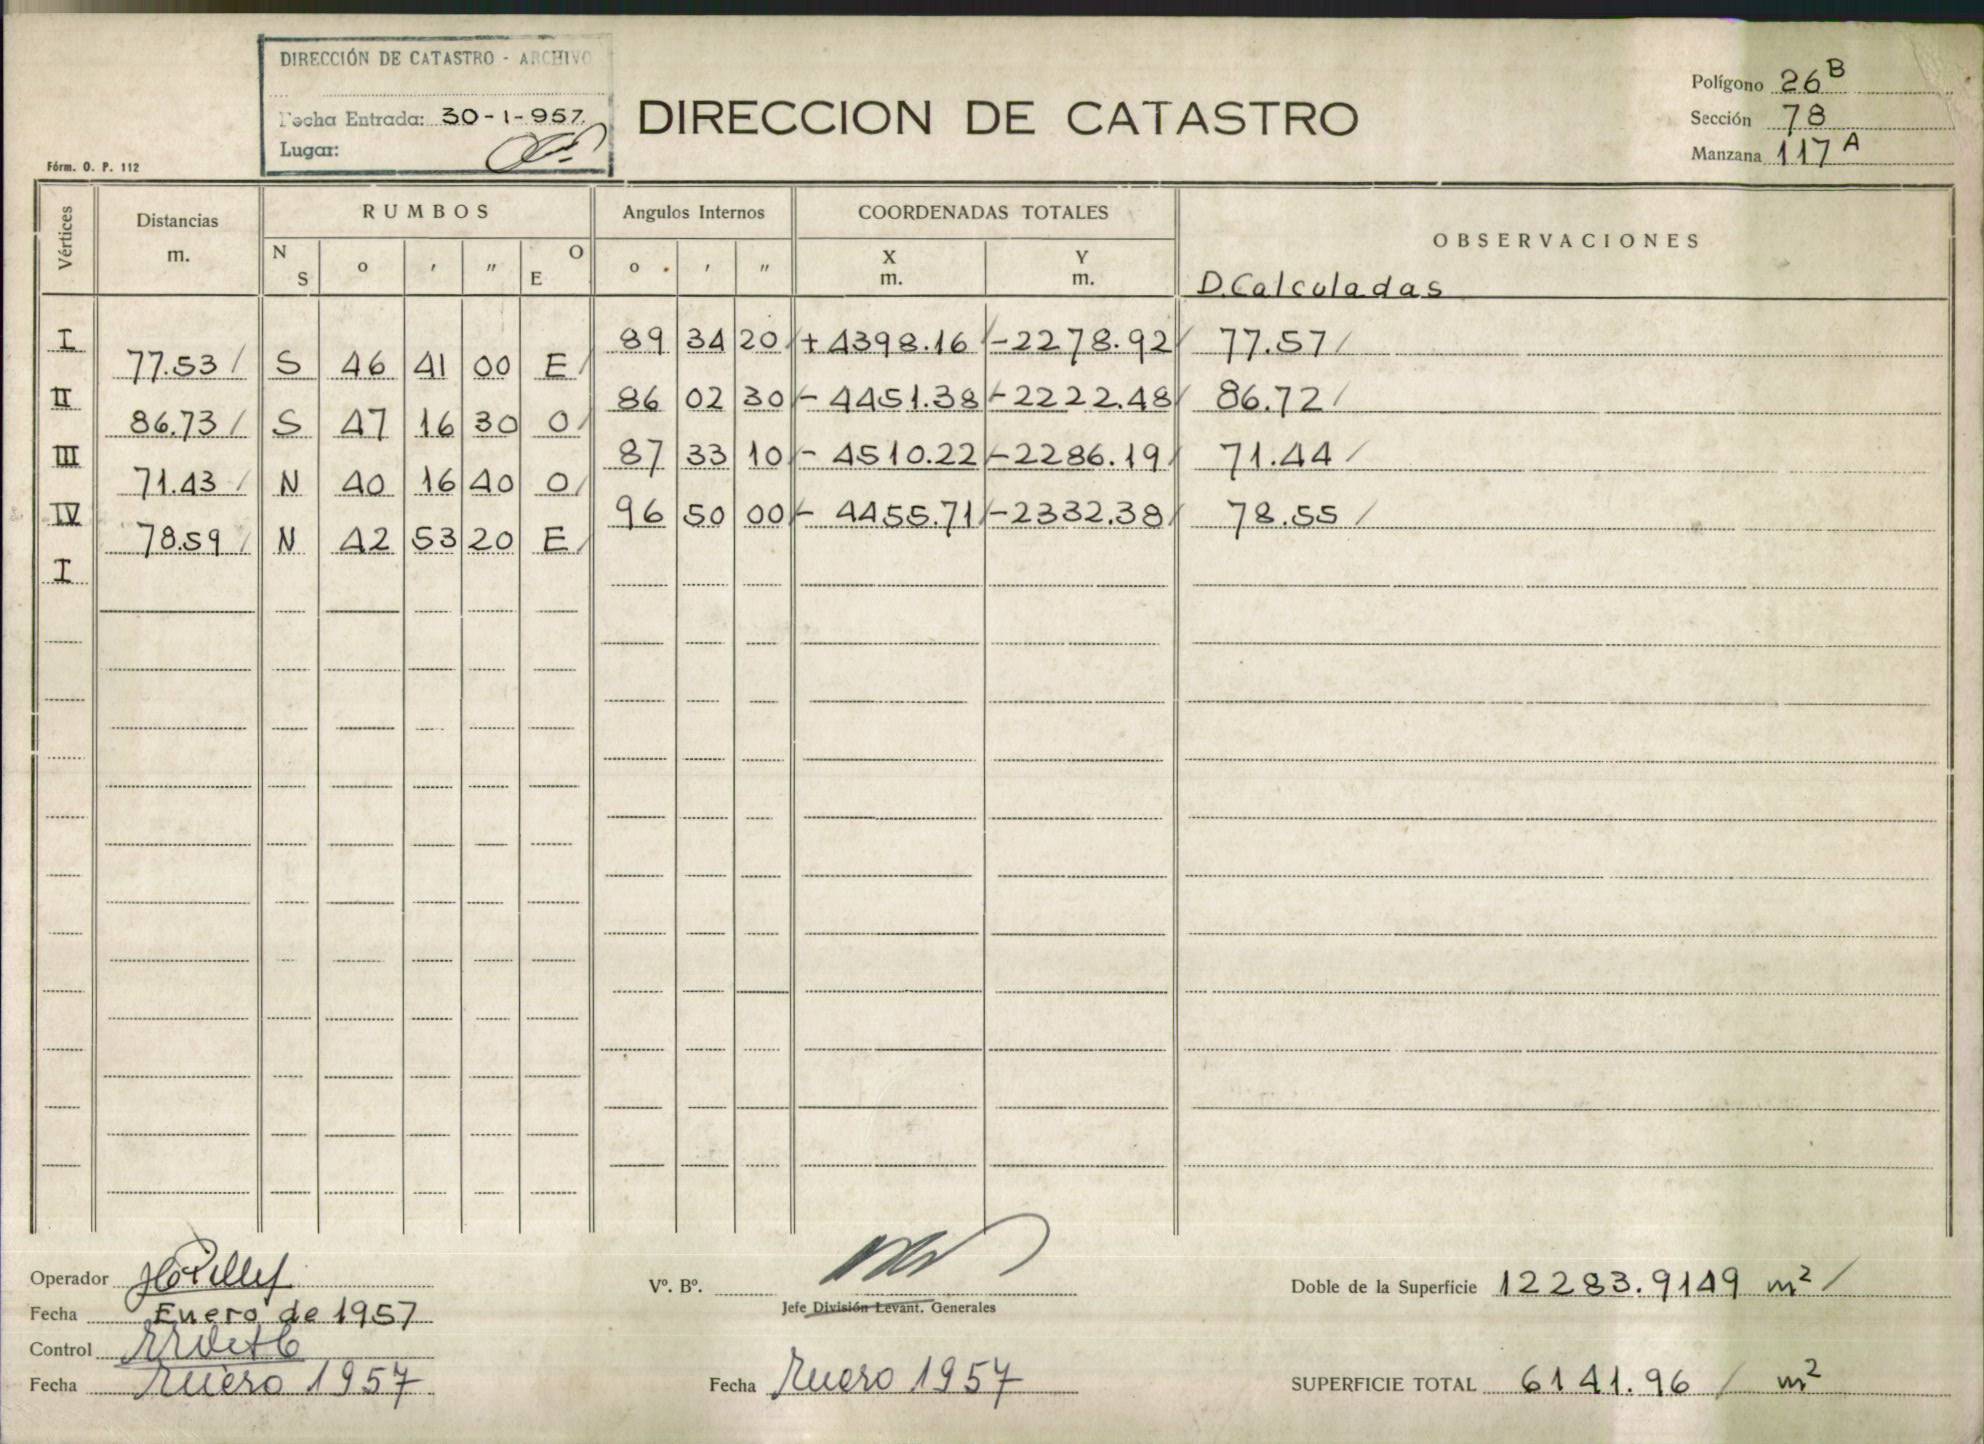 DIRECCIÓN DE CATASTRO - ARCHIVO
Fecha Entrada: 30-1-957.
Lugar:
DIRECCION DE CATASTRO
Polígono 26 B
Sección 78
Manzana 117 A
Fórm. O. P. 112
Vértices Distancias m. RUMBOS N S o ' " O E Angulos Internos o ' " COORDENADAS TOTALES X m. Y m. OBSERVACIONES
D. Calculadas
I 89 34 20 + 4398.16 - 2278.92 77.57
77.53 S 46 41 00 E
II 86 02 30 - 4451.38 - 2222.48 86.72
86.73 S 47 16 30 O
III 87 33 10 - 4510.22 - 2286.19 71.44
71.43 N 40 16 40 O
IV 96 50 00 - 4455.71 - 2332.38 78.55
78.59 N 42 53 20 E
I
Operador
Fecha Enero de 1957
Control
Fecha Enero 1957
Vº. Bº.
Jefe División Levant. Generales
Fecha Enero 1957
Doble de la Superficie 12283.9149 m²
SUPERFICIE TOTAL 6141.96 m²